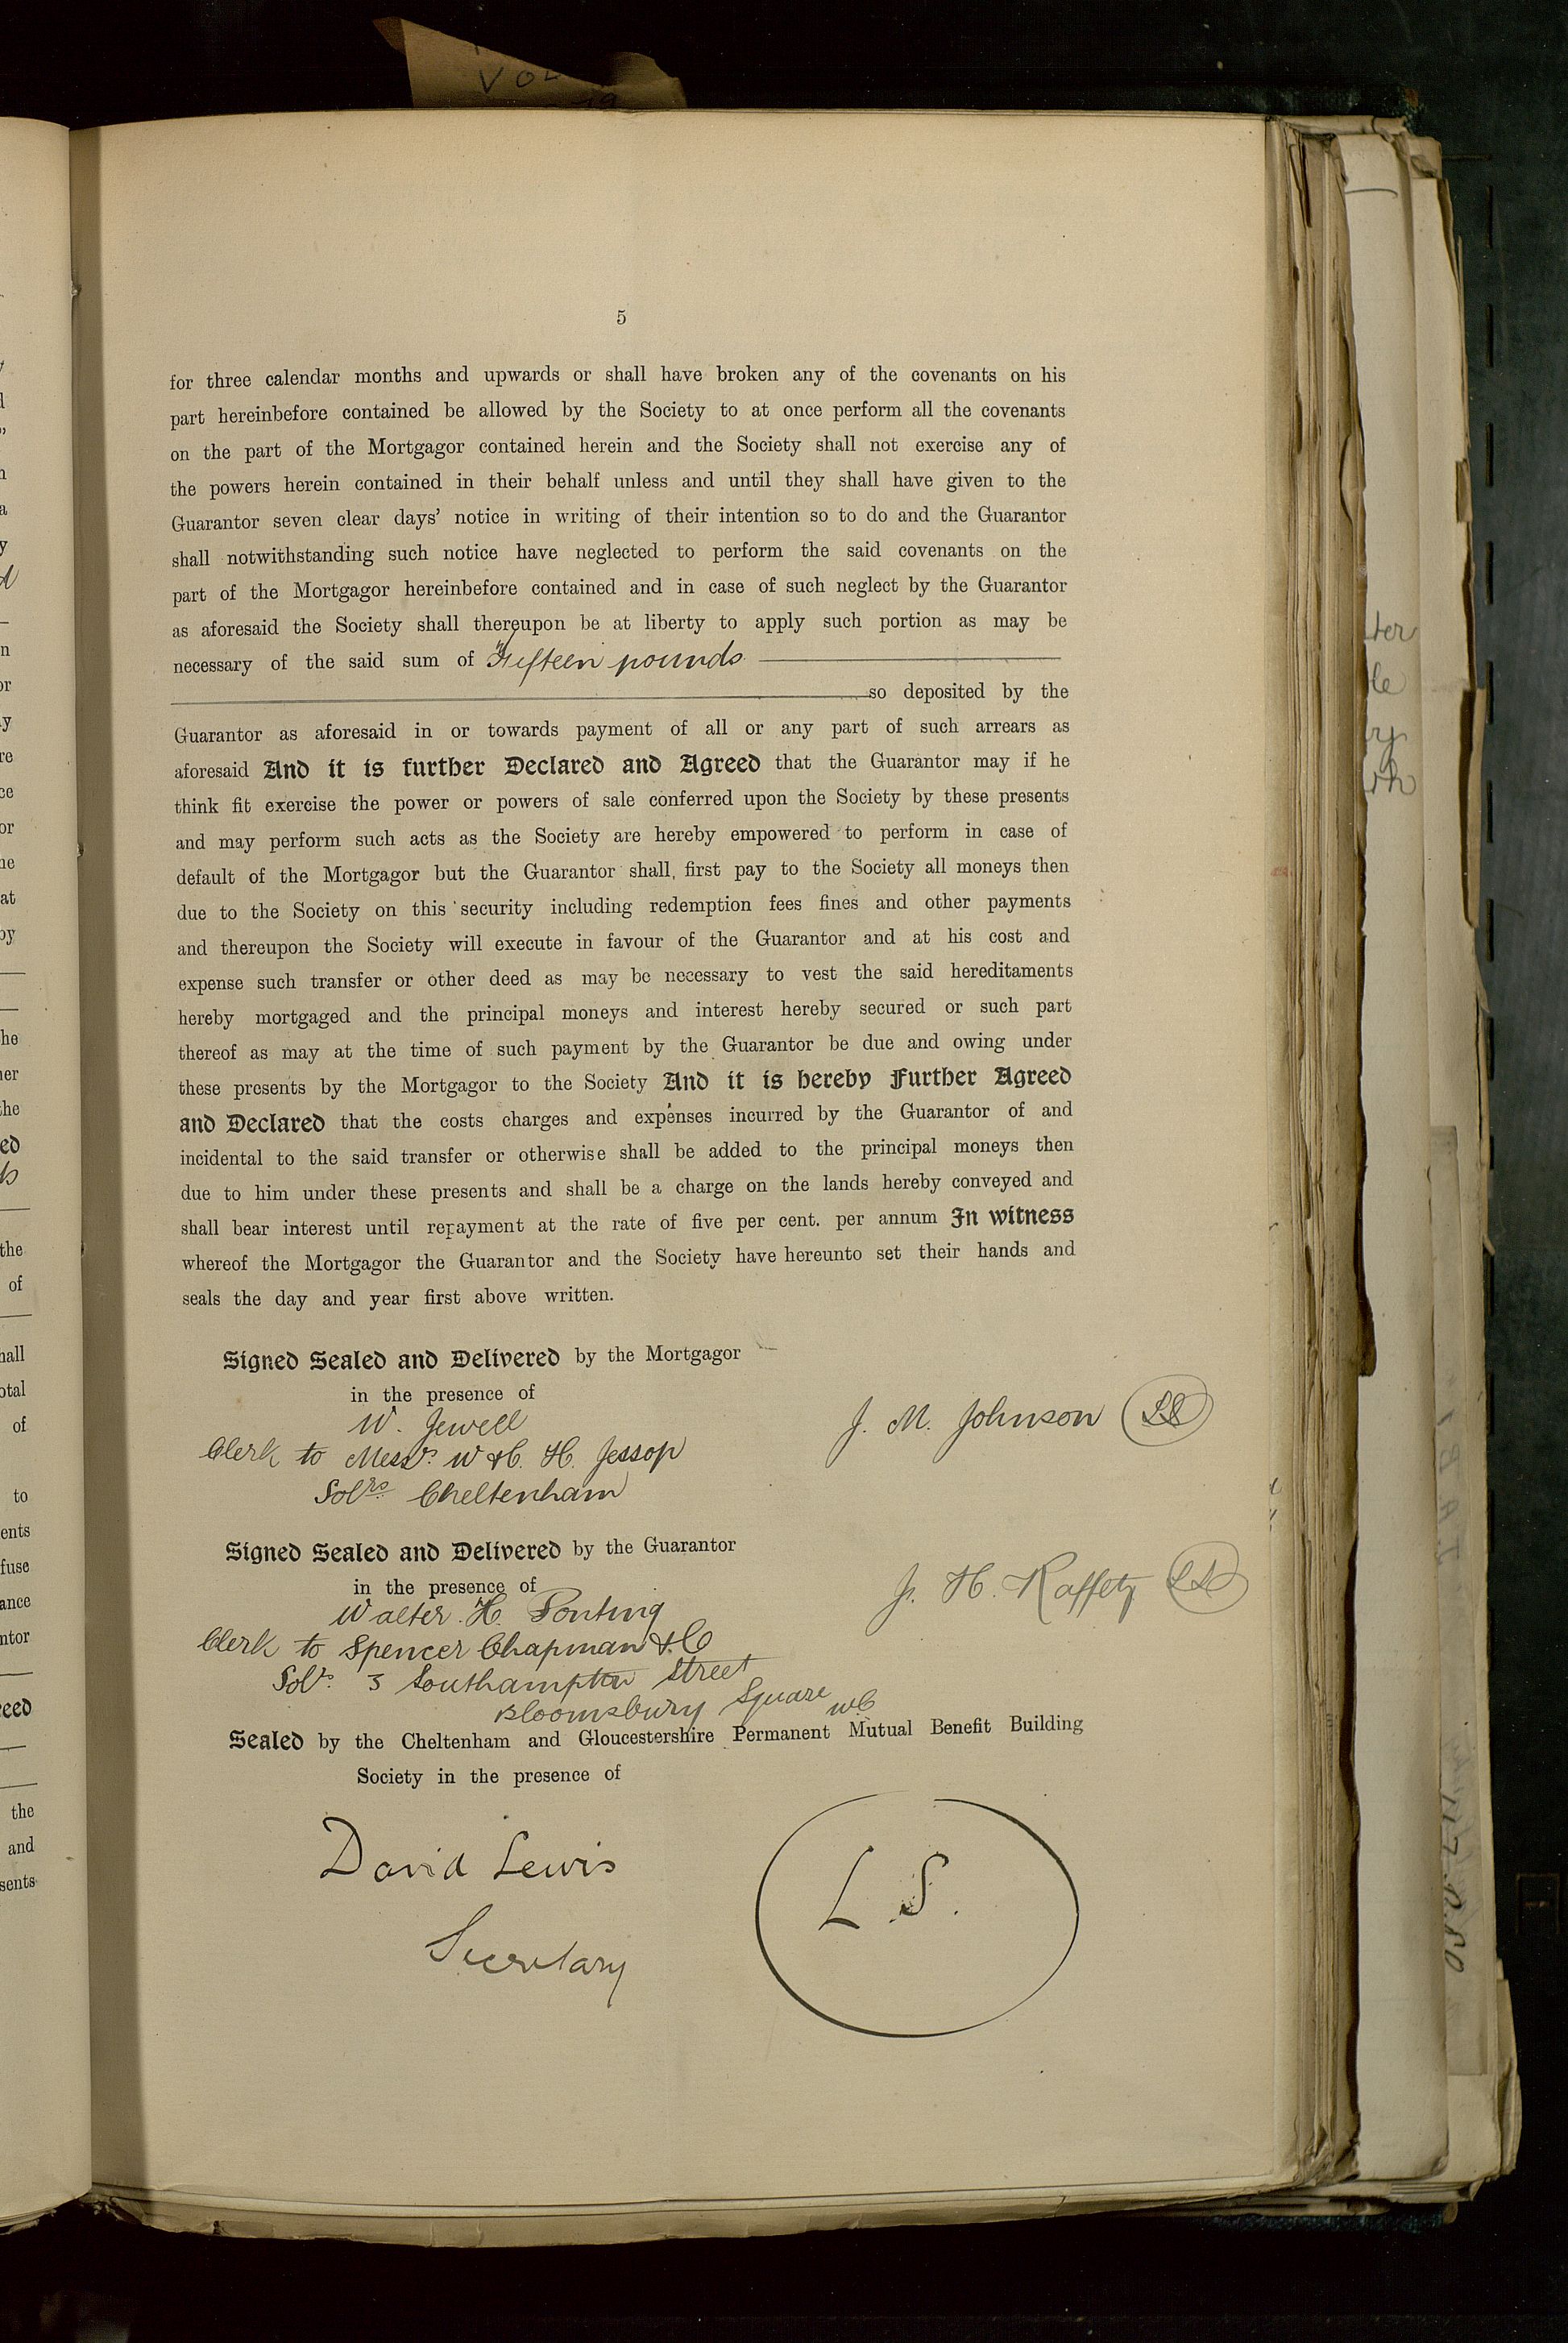 5
for three calendar months and upwards or shall have broken any of the covenants on his
part hereinbefore contained be allowed by the Society to at once perform all the covenants
on the part of the Mortgagor contained herein and the Society shall not exercise any of
the powers herein contained in their behalf unless and until they shall have given to the
Guarantor seven clear days' notice in writing of their intention so to do and the Guarantor
shall notwithstanding such notice have neglected to perform the said covenants on the
part of the Mortgagor hereinbefore contained and in case of such neglect by the Guarantor
as aforesaid the Society shall thereupon be at liberty to apply such portion as may be
necessary of the said sum of Fifteen pounds
so deposited by the
Guarantor as aforesaid in or towards payment of all or any part of such arrears as
aforesaid And it is further Declared and Agreed that the Guarantor may if he
think fit exercise the power or powers of sale conferred upon the Society by these presents
and may perform such acts as the Society are hereby empowered to perform in case of
default of the Mortgagor but the Guarantor shall, first pay to the Society all moneys then
due to the Society on this security including redemption fees fines and other payments
and thereupon the Society will execute in favour of the Guarantor and at his cost and
expense such transfer or other deed as may be necessary to vest the said hereditaments
hereby mortgaged and the principal moneys and interest hereby secured or such part
thereof as may at the time of such payment by the Guarantor be due and owing under
these presents by the Mortgagor to the Society And it is hereby Further Agreed
and Declared that the costs charges and expenses incurred by the Guarantor of and
incidental to the said transfer or otherwise shall be added to the principal moneys then
due to him under these presents and shall be a charge on the lands hereby conveyed and
shall bear interest until repayment at the rate of five per cent. per annum In witness
whereof the Mortgagor the Guarantor and the Society have hereunto set their hands and
seals the day and year first above written.
Signed Sealed and Delivered by the Mortgagor
in the presence of
W. Jewell
J. M. Johnson LS
Clerk to Messrs. W & C. H. Jessop
Solrs. Cheltenham
Signed Sealed and Delivered by the Guarantor
in the presence of
J. H. Raffety LS
Walter. H. Ponting
Clerk to Spencer Chapman & Co
Solrs. 3 Southampton Street
Bloomsbury Square WC
Sealed by the Cheltenham and Gloucestershire Permanent Mutual Benefit Building
Society in the presence of
David Lewis
L.S.
Secretary